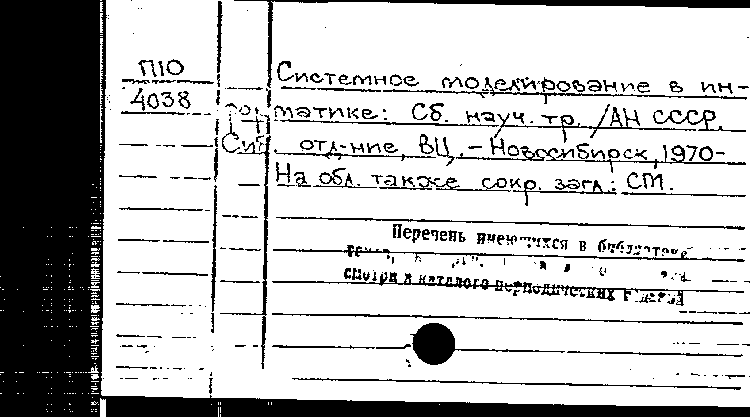 П10
4038
Системное моделирование в ин-
форматике: Сб. науч. тр. /АН СССР.
Сиб. отд-ние, ВЦ. – Новосибирск, 1970-
На обл. также сокр. загл.: СМ.
Перечень имеющихся в библиотеке
смотри в каталоге периодических изданий